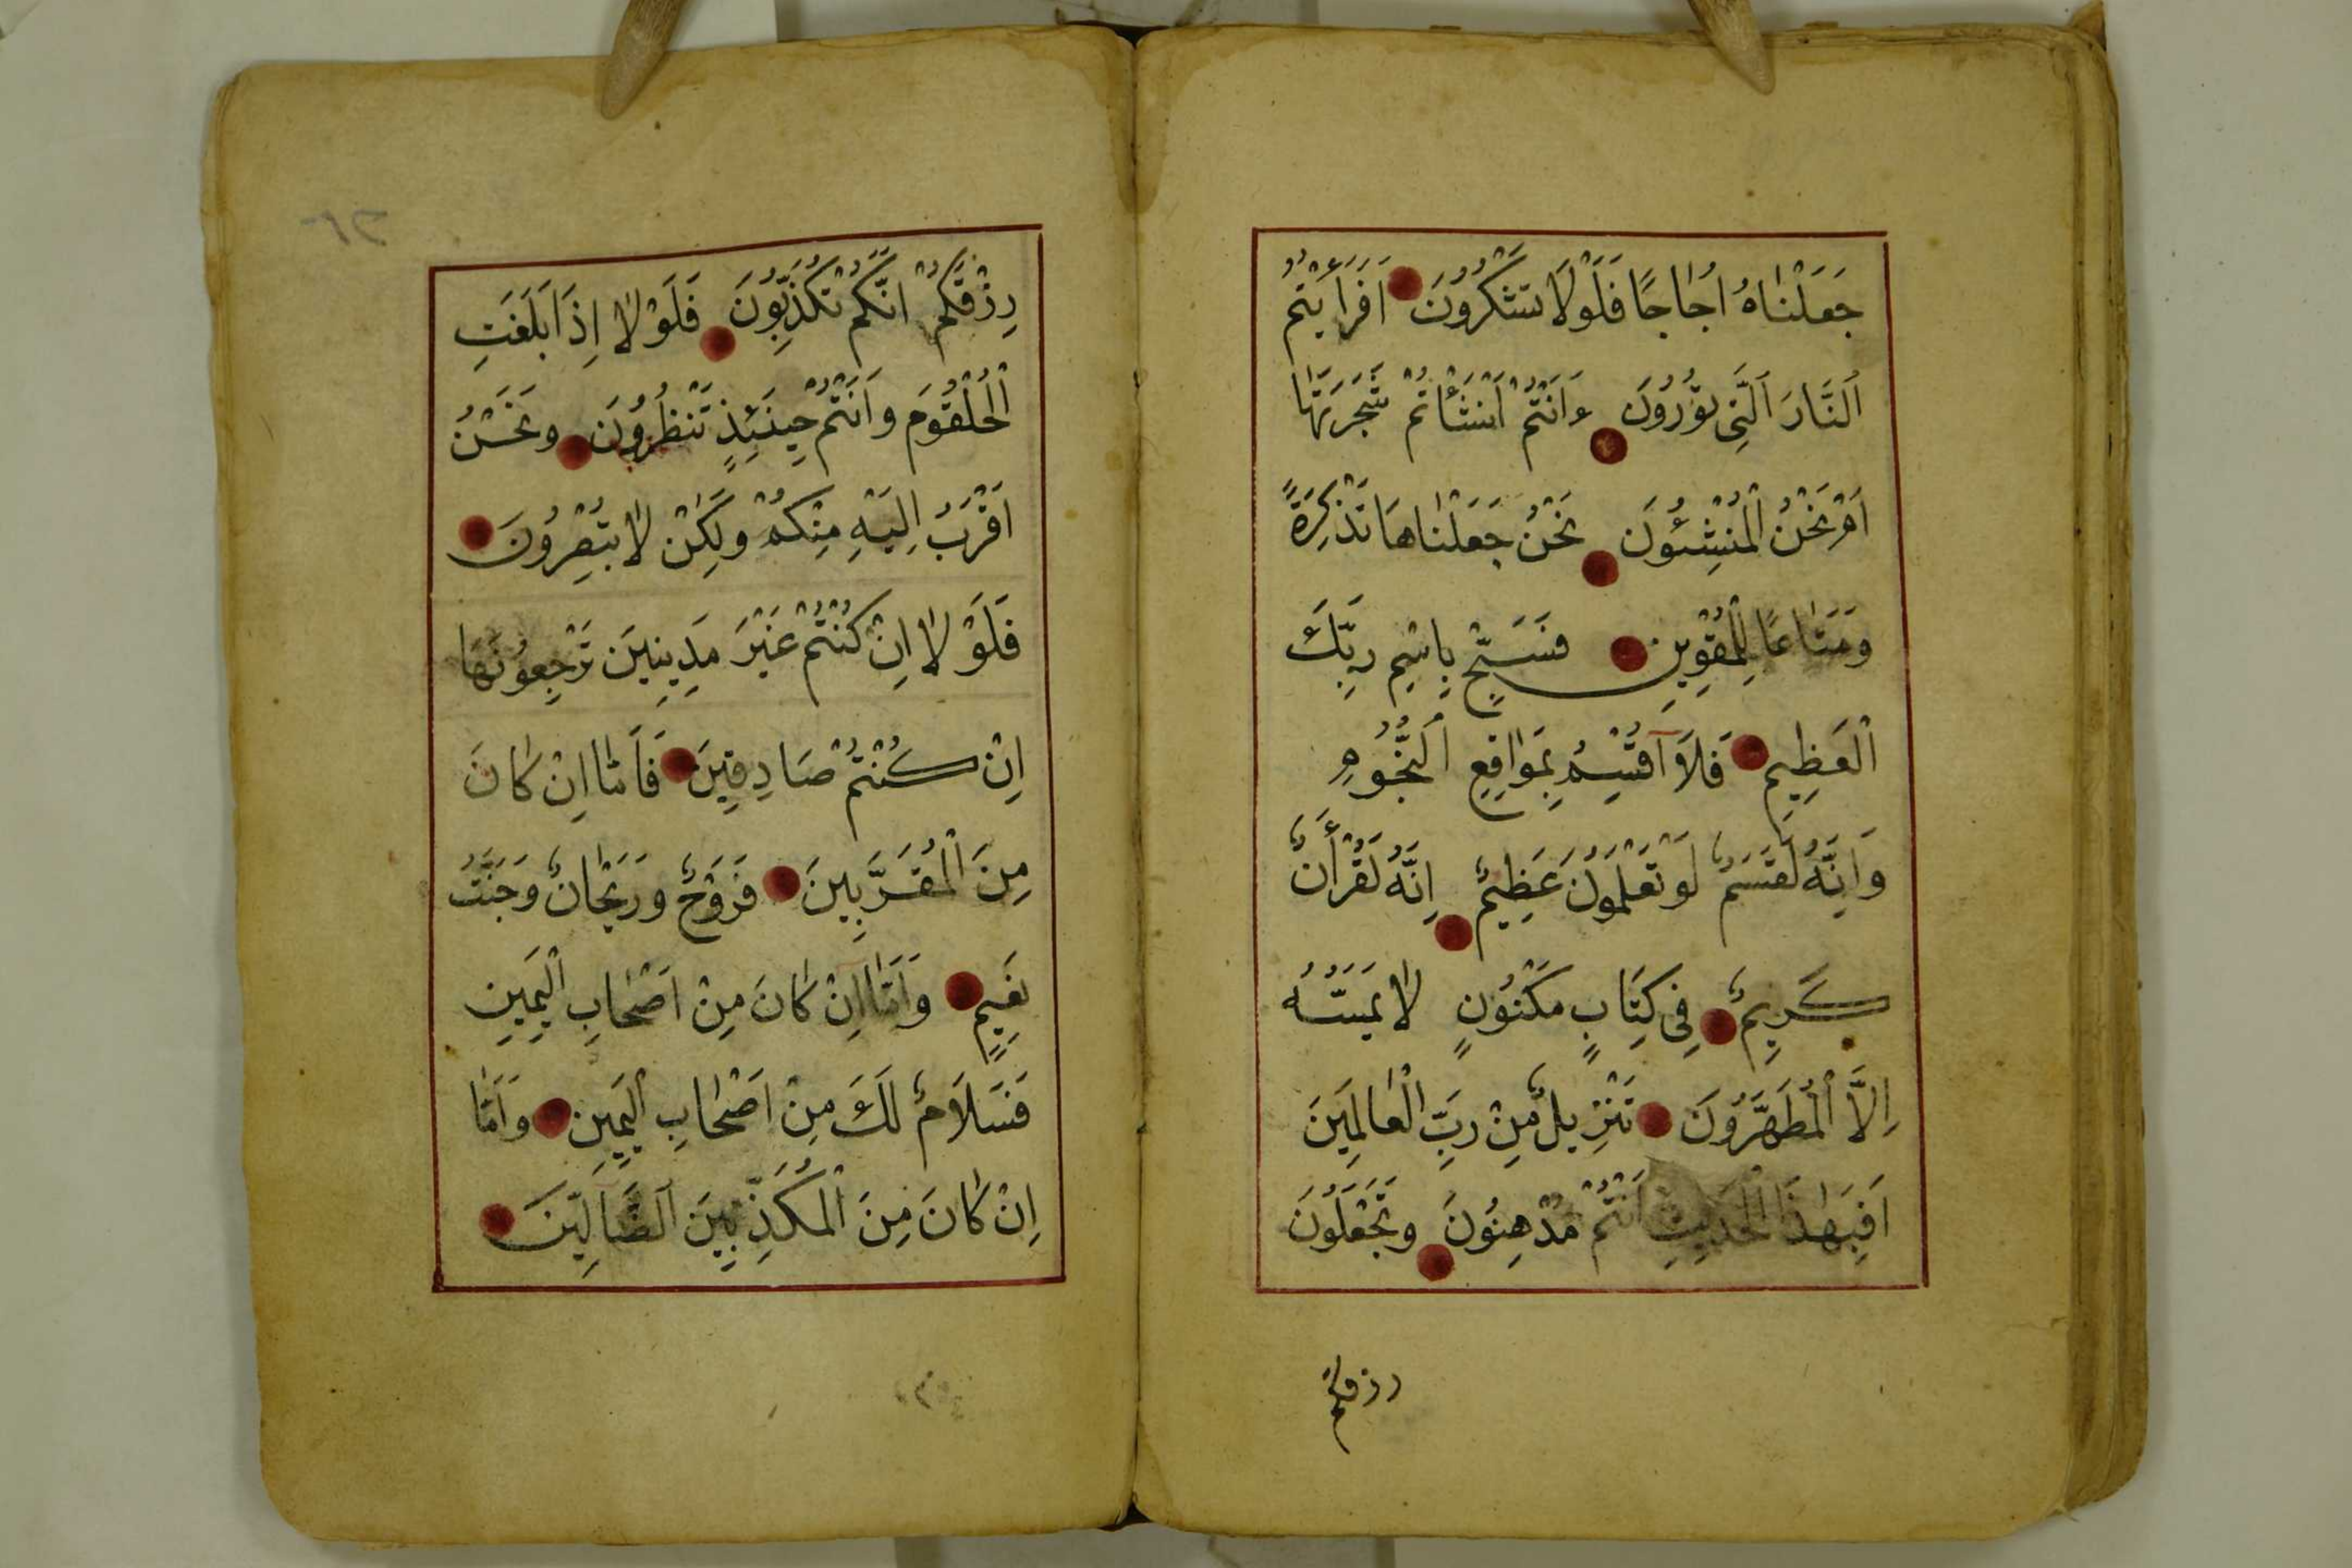 جَعَلْنَاهُ اُجَاجًا فَلَوْلَا تَشْكُرُونَ اَفَرَاَيْتُمُ
اَلنَّارَ اَلَّتِى تُوْرُوُنَ ءَاَنْتُمْ اَنْشَأْتُمْ شَجَرَتَهَا
اَمْ نَحْنُ الْمُنْشِئُونَ نَحْنُ جَعَلْنَاهَا تَذْكِرَةً
وَمَتَاعًا لِلْمُقْوِينَ فَسَبِّحْ بِاسْمِ رَبِّكَ
الْعَظِيمِ فَلَآ اُقْسِمُ بِمَوَاقِعِ اَلنُّجُوُمِ
وَاِنَّهُ لَقَسَمٌ لَوْ تَعْلَمُونَ عَظِيمٌ اِنَّهُ لَقُرْأَنٌ
كَرِيمٌ فِى كِتَابٍ مَكْنُوُنٍ لَا يَمَسُّهُ
اِلَّا الْمُطَهَّرُوُنَ تَنْزِيلٌ مِنْ رَبِّ الْعَالَمِينَ
اَفَبِهٰذَا الْحَدِيثِ اَنْتُمْ مُدْهِنُونَ وَتَجْعَلُوُنَ
رزقكم
٦٣
رِزْقَكُمْ اَنَّكُمْ تُكَذِّبُوُنَ فَلَوْلَا اِذَا بَلَغَتِ
الْحُلْقُوُمَ وَاَنْتُمْ حِينَئِذٍ تَنْظُرُوُنَ وَنَحْنُ
اَقْرَبُ اِلَيْهِ مِنْكُمْ وَلٰكِنْ لَا تُبْصِرُوُنَ
فَلَوْلَا اِنْ كُنْتُمْ غَيْرَ مَدِينِينَ تَرْجِعُوُنَهَا
اِنْ كُنْتُمْ صَادِقِينَ فَاَمَّا اِنْ كَانَ
مِنَ الْمُقَرَّبِينَ فَرَوْحٌ وَرَيْحَانٌ وَجَنَّتُ
نَعِيمٍ وَاَمَّا اِنْ كَانَ مِنْ اَصْحَابِ الْيَمِينِ
فَسَلَامٌ لَكَ مِنْ اَصْحَابِ الْيَمِينِ وَاَمَّا
اِنْ كَانَ مِنَ الْمُكَذِّبِينَ اَلضَّآلِّينَ